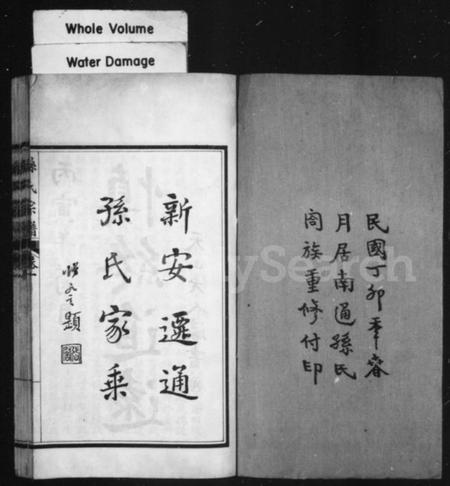 Whole Volume
Water Damage
民國丁卯年春
月居南通孫氏
閤族重修付印
新安遷通
孫氏家乘
題
孫氏宗譜
MySearch